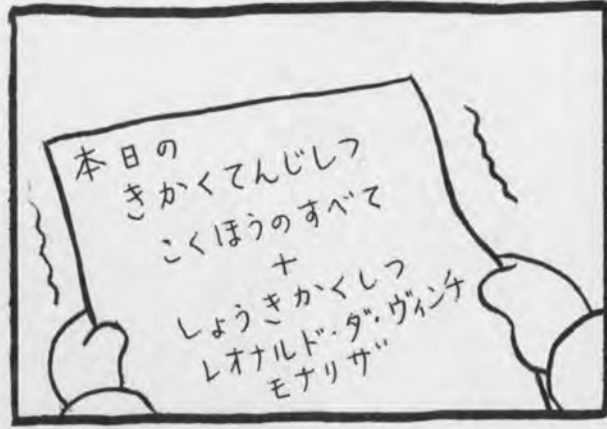 本日の
きかくてんじしつ
こくほうのすべて
+
しょうきかくしつ
レオナルド・ダ・ヴィンチ
モナリザ